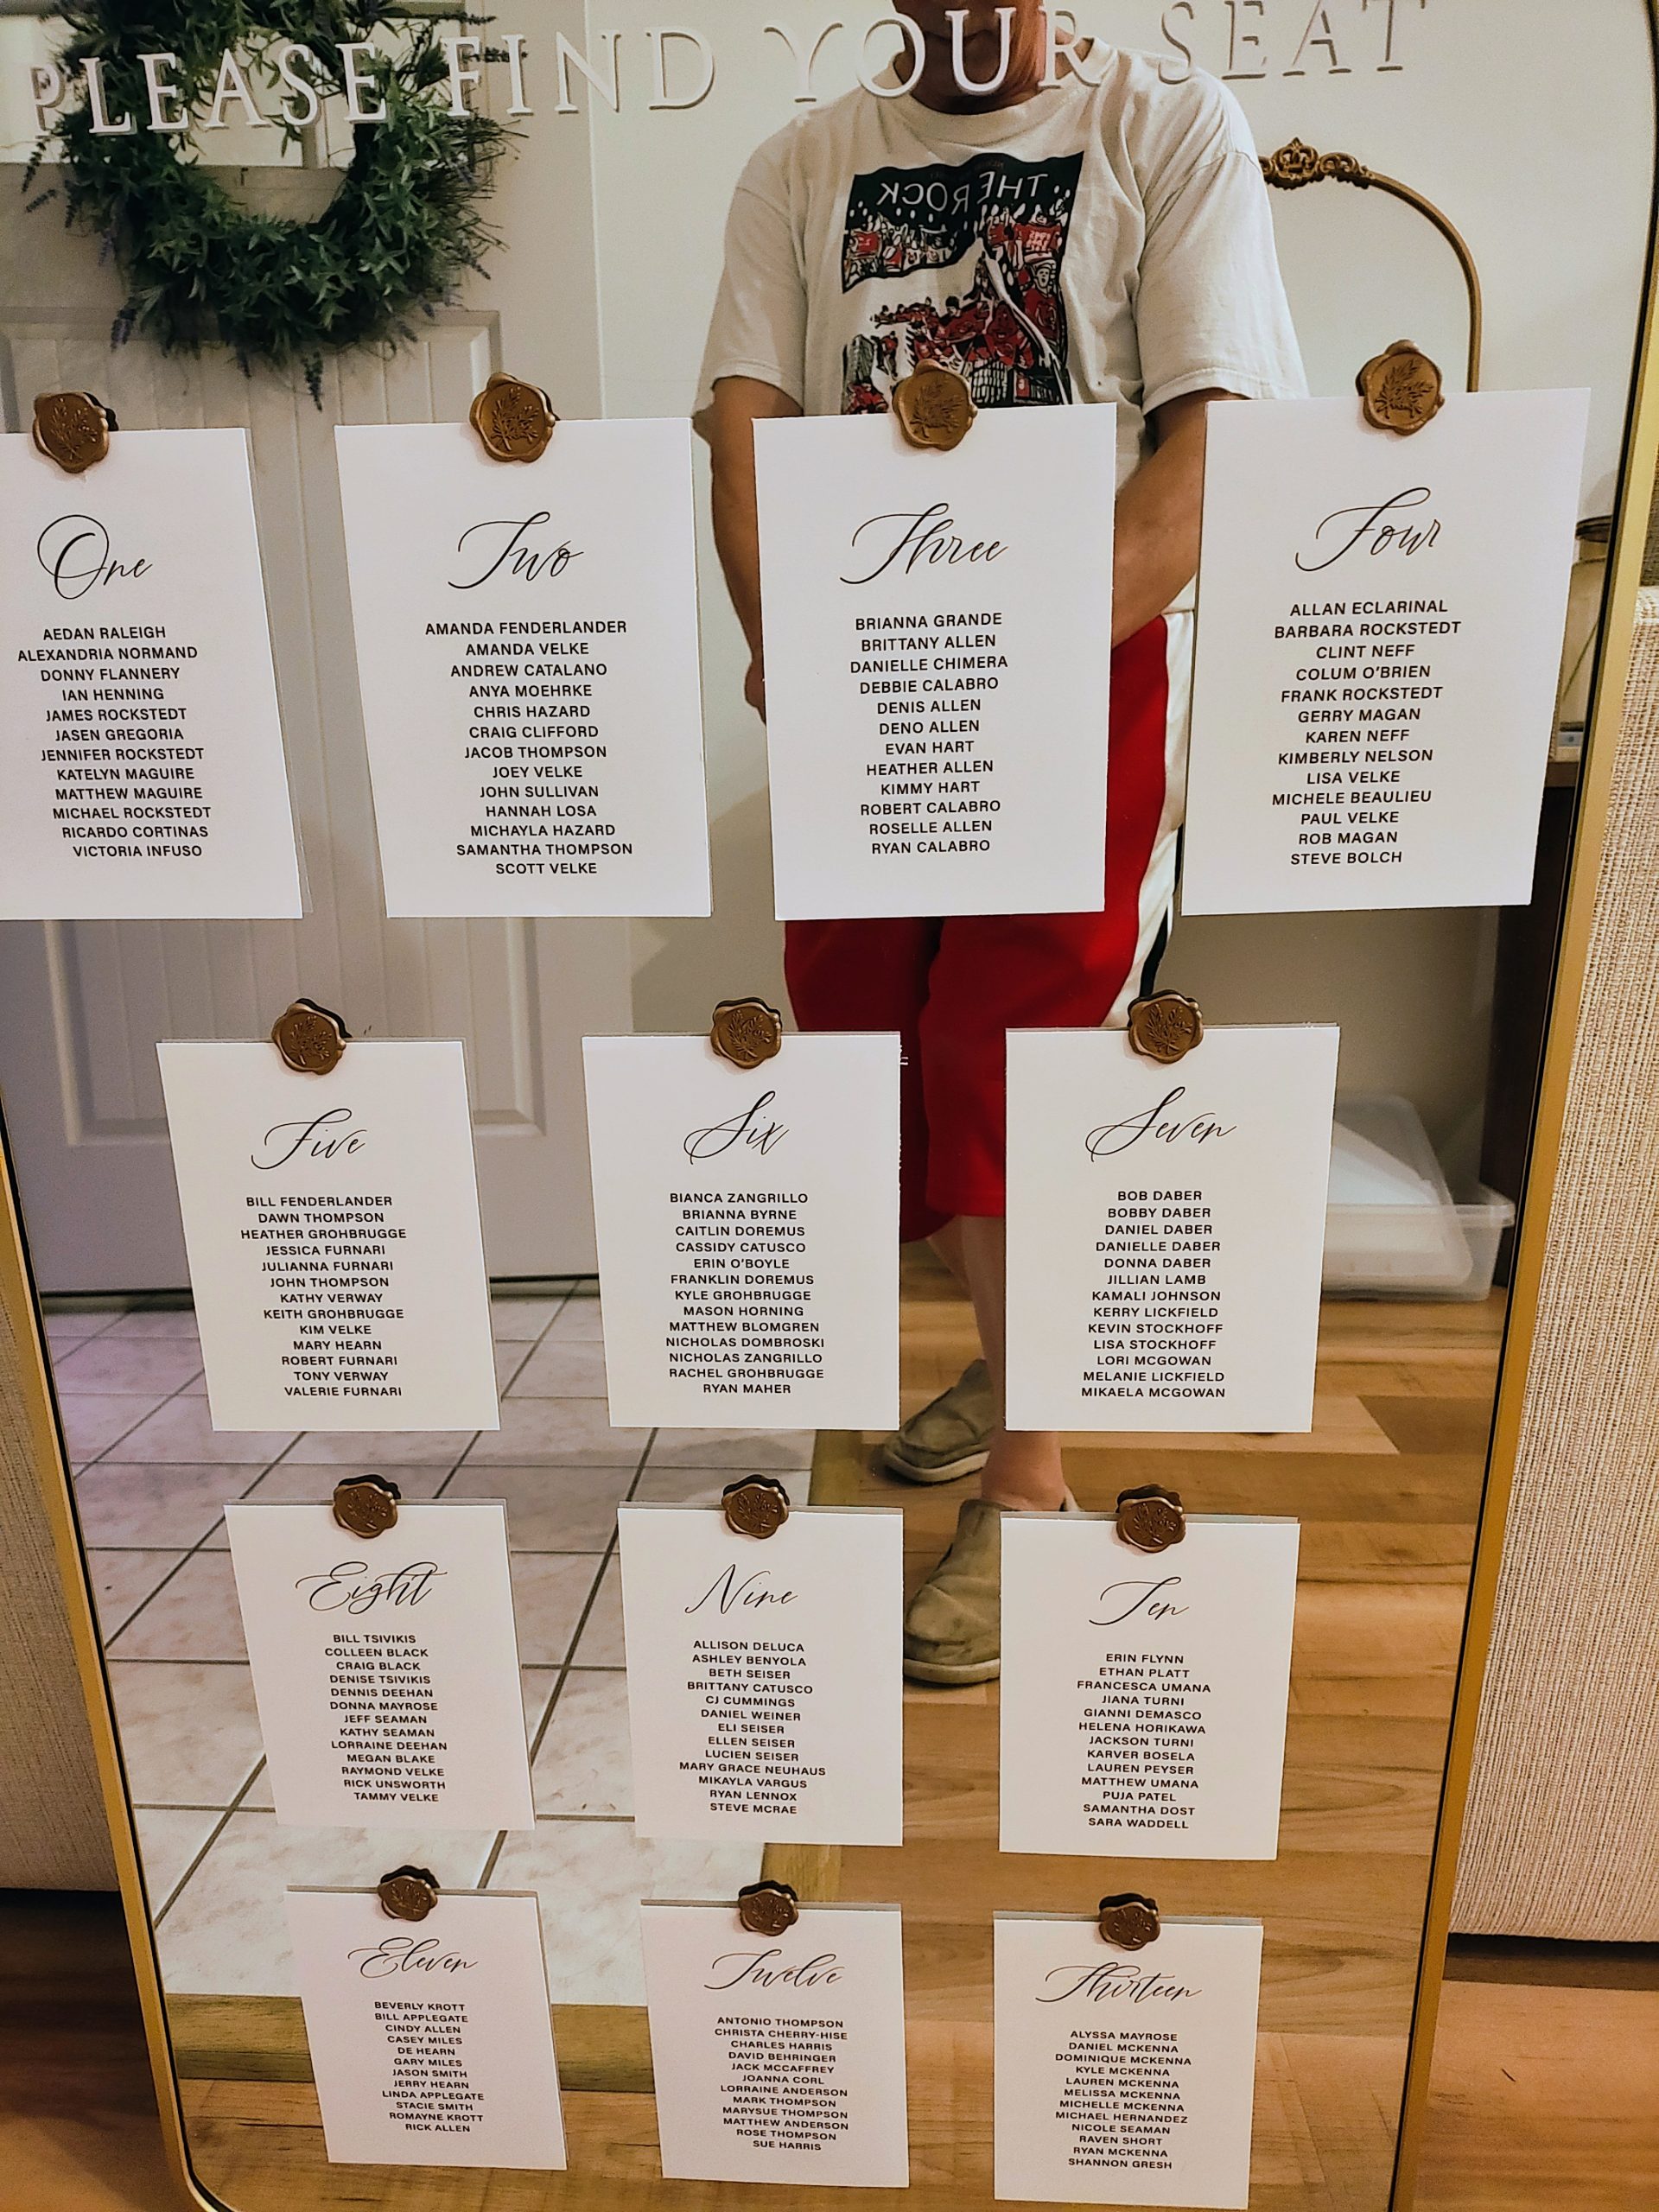 PLEASE FIND YOUR SEAT
THE ROCK
One
AEDAN RALEIGH
ALEXANDRIA NORMAND
DONNY FLANNERY
IAN HENNING
JAMES ROCKSTEDT
JASEN GREGORIA
JENNIFER ROCKSTEDT
KATELYN MAGUIRE
MATTHEW MAGUIRE
MICHAEL ROCKSTEDT
RICARDO CORTINAS
VICTORIA INFUSO
Two
AMANDA FENDERLANDER
AMANDA VELKE
ANDREW CATALANO
ANYA MOEHRKE
CHRIS HAZARD
CRAIG CLIFFORD
JACOB THOMPSON
JOEY VELKE
JOHN SULLIVAN
HANNAH LOSA
MICHAYLA HAZARD
SAMANTHA THOMPSON
SCOTT VELKE
Three
BRIANNA GRANDE
BRITTANY ALLEN
DANIELLE CHIMERA
DEBBIE CALABRO
DENIS ALLEN
DENO ALLEN
EVAN HART
HEATHER ALLEN
KIMMY HART
ROBERT CALABRO
ROSELLE ALLEN
RYAN CALABRO
Four
ALLAN ECLARINAL
BARBARA ROCKSTEDT
CLINT NEFF
COLUM O'BRIEN
FRANK ROCKSTEDT
GERRY MAGAN
KAREN NEFF
KIMBERLY NELSON
LISA VELKE
MICHELE BEAULIEU
PAUL VELKE
ROB MAGAN
STEVE BOLCH
Five
BILL FENDERLANDER
DAWN THOMPSON
HEATHER GROHBRUGGE
JESSICA FURNARI
JULIANNA FURNARI
JOHN THOMPSON
KATHY VERWAY
KEITH GROHBRUGGE
KIM VELKE
MARY HEARN
ROBERT FURNARI
TONY VERWAY
VALERIE FURNARI
Six
BIANCA ZANGRILLO
BRIANNA BYRNE
CAITLIN DOREMUS
CASSIDY CATUSCO
ERIN O'BOYLE
FRANKLIN DOREMUS
KYLE GROHBRUGGE
MASON HORNING
MATTHEW BLOMGREN
NICHOLAS DOMBROSKI
NICHOLAS ZANGRILLO
RACHEL GROHBRUGGE
RYAN MAHER
Seven
BOB DABER
BOBBY DABER
DANIEL DABER
DANIELLE DABER
DONNA DABER
JILLIAN LAMB
KAMALI JOHNSON
KERRY LICKFIELD
KEVIN STOCKHOFF
LISA STOCKHOFF
LORI MCGOWAN
MELANIE LICKFIELD
MIKAELA MCGOWAN
Eight
BILL TSIVIKIS
COLLEEN BLACK
CRAIG BLACK
DENISE TSIVIKIS
DENNIS DEEHAN
DONNA MAYROSE
JEFF SEAMAN
KATHY SEAMAN
LORRAINE DEEHAN
MEGAN BLAKE
RAYMOND VELKE
RICK UNSWORTH
TAMMY VELKE
Nine
ALLISON DELUCA
ASHLEY BENYOLA
BETH SEISER
BRITTANY CATUSCO
CJ CUMMINGS
DANIEL WEINER
ELI SEISER
ELLEN SEISER
LUCIEN SEISER
MARY GRACE NEUHAUS
MIKAYLA VARGUS
RYAN LENNOX
STEVE MCRAE
Ten
ERIN FLYNN
ETHAN PLATT
FRANCESCA UMANA
JIANA TURNI
GIANNI DEMASCO
HELENA HORIKAWA
JACKSON TURNI
KARVER BOSELA
LAUREN PEYSER
MATTHEW UMANA
PUJA PATEL
SAMANTHA DOST
SARA WADDELL
Eleven
BEVERLY KROTT
BILL APPLEGATE
CINDY ALLEN
CASEY MILES
DE HEARN
GARY MILES
JASON SMITH
JERRY HEARN
LINDA APPLEGATE
STACIE SMITH
ROMAYNE KROTT
RICK ALLEN
Twelve
ANTONIO THOMPSON
CHRISTA CHERRY-HISE
CHARLES HARRIS
DAVID BEHRINGER
JACK MCCAFFREY
JOANNA CORL
LORRAINE ANDERSON
MARK THOMPSON
MARYSUE THOMPSON
MATTHEW ANDERSON
ROSE THOMPSON
SUE HARRIS
Thirteen
ALYSSA MAYROSE
DANIEL MCKENNA
DOMINIQUE MCKENNA
KYLE MCKENNA
LAUREN MCKENNA
MELISSA MCKENNA
MICHELLE MCKENNA
MICHAEL HERNANDEZ
NICOLE SEAMAN
RAVEN SHORT
RYAN MCKENNA
SHANNON GRESH